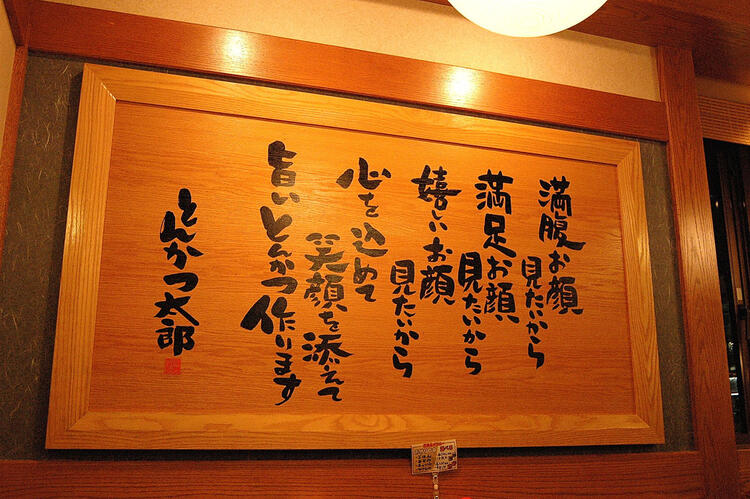 満腹お顔
見たいから
満足お顔
見たいから
嬉しいお顔
見たいから
心を込めて
笑顔を添えて
旨いとんかつ作ります
とんかつ太郎